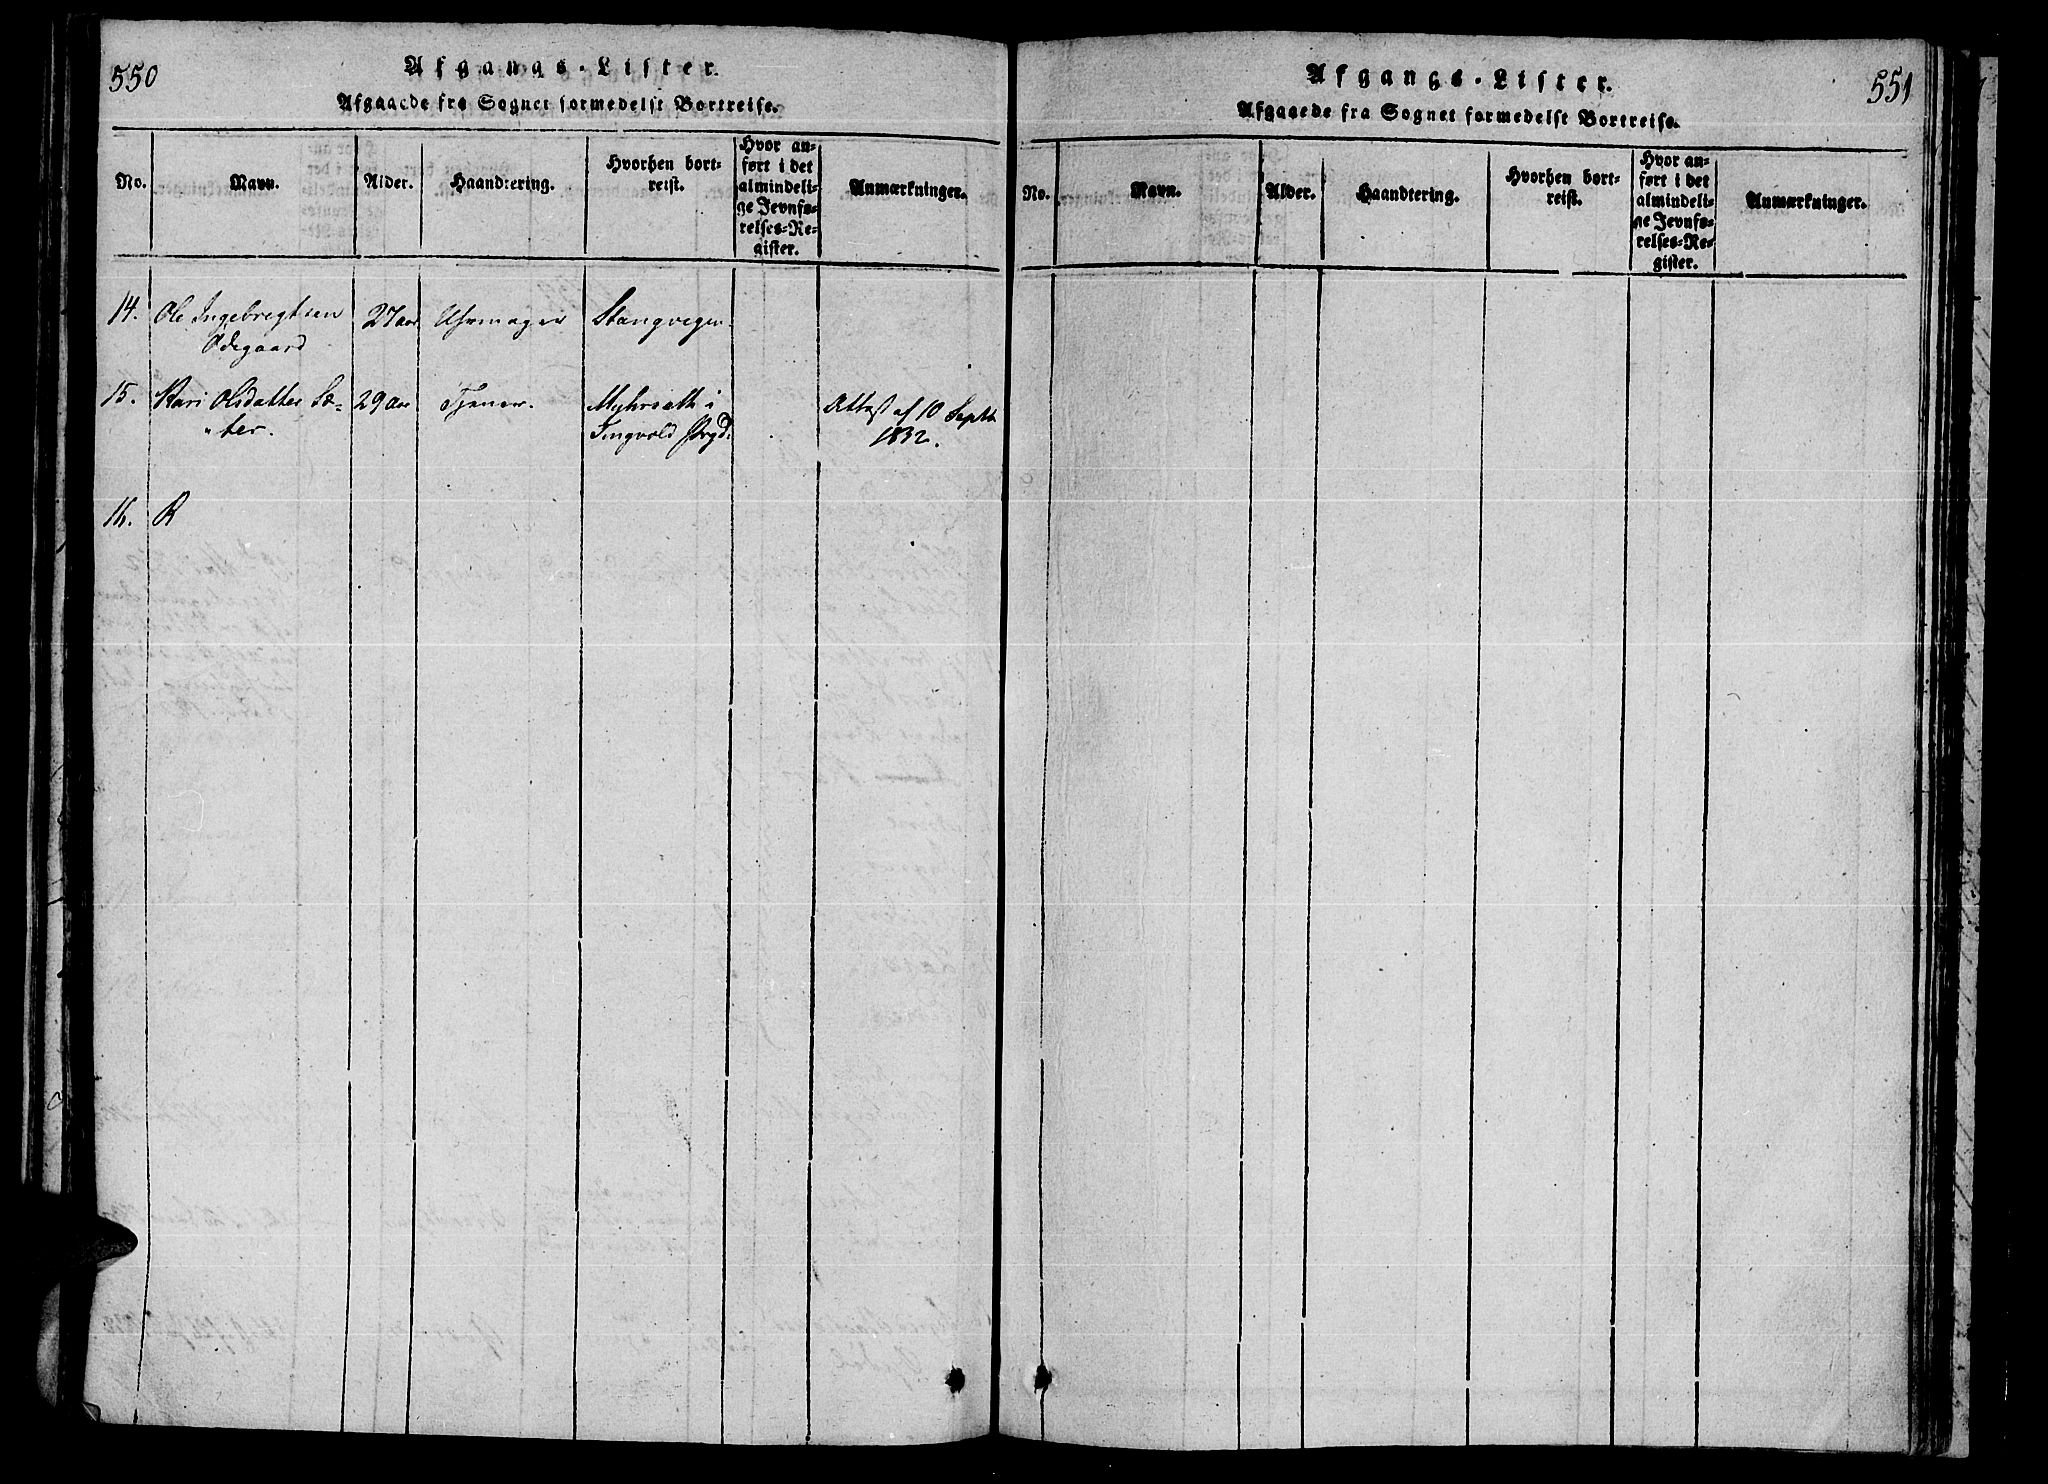 550
Afgangs-Lister.
Afgaaede fra Sognet formedelst Bortreise.
No.
Navn.
Alder.
Haandtering.
Hvorhen bort-
reist.
Hvor an-
ført i det
almindeli-
ge Jevnfø-
relses-Re-
gister.
Anmærkninger.
14. Ole Ingebregtsen 27 aar Uhrmager Stangvigen.
Ødegaard
15. Kari Olsdatter Sæ- 29 Aar Tjener. i Attest af 10 Septb
ter. Tingvold Prgd. 1832.
16. R
Afgangs-Lister.
551
Afgaaede fra Sognet formedelst Bortreise.
No.
Navn.
Alder.
Haandtering.
Hvorhen bort-
reist.
Hvor an-
ført i det
almindeli-
ge Jevnfø-
relses-Re-
gister.
Anmærkninger.